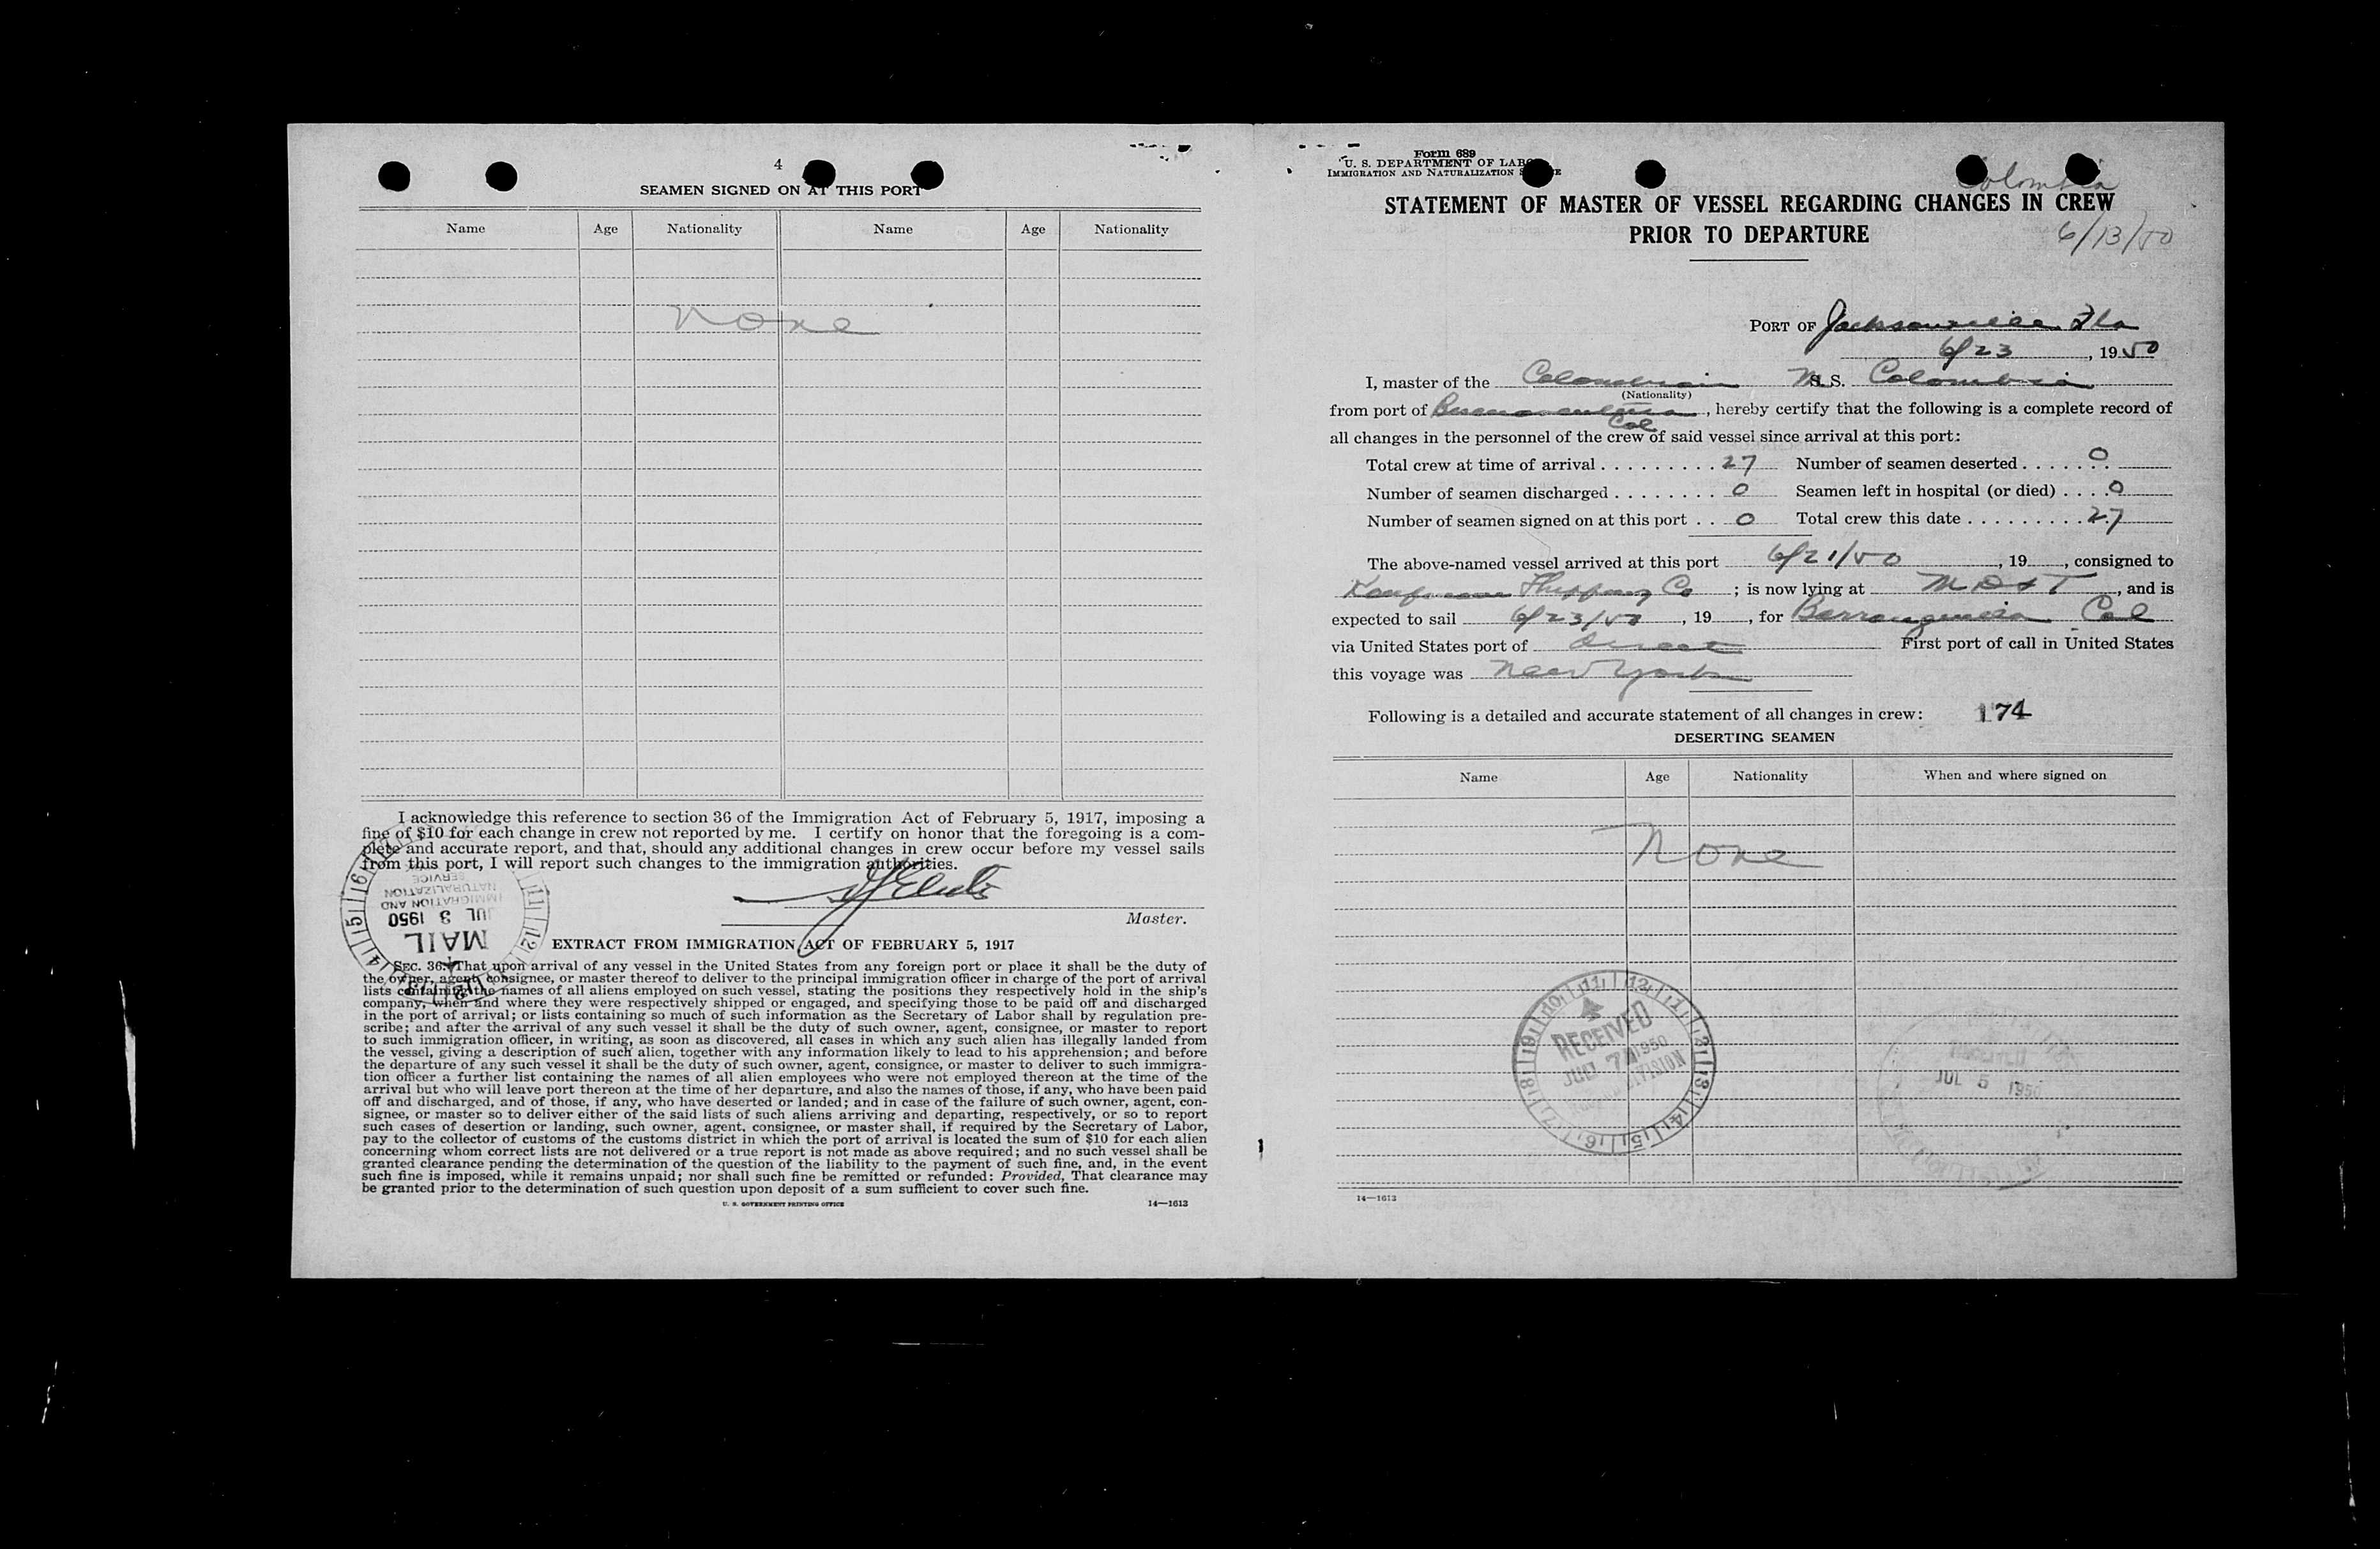 4
SEAMEN SIGNED ON AT THIS PORT
Name Age Nationality Name Age Nationality
None
I acknowledge this reference to section 36 of the Immigration Act of February 5, 1917, imposing a
fine of $10 for each change in crew not reported by me. I certify on honor that the foregoing is a com-
plete and accurate report, and that, should any additional changes in crew occur before my vessel sails
from this port, I will report such changes to the immigration authorities.
Master.
IMMIGRATION AND
NATURALIZATION
SERVICE
JUL 3 1950
MAIL
EXTRACT FROM IMMIGRATION ACT OF FEBRUARY 5, 1917
SEC. 36. That upon arrival of any vessel in the United States from any foreign port or place it shall be the duty of
the owner, agent, consignee, or master thereof to deliver to the principal immigration officer in charge of the port of arrival
lists containing the names of all aliens employed on such vessel, stating the positions they respectively hold in the ship's
company, when and where they were respectively shipped or engaged, and specifying those to be paid off and discharged
in the port of arrival; or lists containing so much of such information as the Secretary of Labor shall by regulation pre-
scribe; and after the arrival of any such vessel it shall be the duty of such owner, agent, consignee, or master to report
to such immigration officer, in writing, as soon as discovered, all cases in which any such alien has illegally landed from
the vessel, giving a description of such alien, together with any information likely to lead to his apprehension; and before
the departure of any such vessel it shall be the duty of such owner, agent, consignee, or master to deliver to such immigra-
tion officer a further list containing the names of all alien employees who were not employed thereon at the time of the
arrival but who will leave port thereon at the time of her departure, and also the names of those, if any, who have been paid
off and discharged, and of those, if any, who have deserted or landed; and in case of the failure of such owner, agent, con-
signee, or master so to deliver either of the said lists of such aliens arriving and departing, respectively, or so to report
such cases of desertion or landing, such owner, agent, consignee, or master shall, if required by the Secretary of Labor,
pay to the collector of customs of the customs district in which the port of arrival is located the sum of $10 for each alien
concerning whom correct lists are not delivered or a true report is not made as above required; and no such vessel shall be
granted clearance pending the determination of the question of the liability to the payment of such fine, and, in the event
such fine is imposed, while it remains unpaid; nor shall such fine be remitted or refunded: Provided, That clearance may
be granted prior to the determination of such question upon deposit of a sum sufficient to cover such fine.
U. S. GOVERNMENT PRINTING OFFICE 14—1613
Form 689
U. S. DEPARTMENT OF LABOR
IMMIGRATION AND NATURALIZATION SERVICE
Colombia
STATEMENT OF MASTER OF VESSEL REGARDING CHANGES IN CREW
PRIOR TO DEPARTURE
6/13/50
PORT OF Jacksonville Fla
6/23, 1950
I, master of the Colombian M.S. Colombia
(Nationality)
from port of Buenaventura, hereby certify that the following is a complete record of
Col
all changes in the personnel of the crew of said vessel since arrival at this port:
Total crew at time of arrival . . . . . . . . . 27 Number of seamen deserted . . . . . . . 0
Number of seamen discharged . . . . . . . . 0 Seamen left in hospital (or died) . . . . 0
Number of seamen signed on at this port . . 0 Total crew this date . . . . . . . . . 27
The above-named vessel arrived at this port 6/21/50, 19, consigned to
Shipping Co; is now lying at M D & T, and is
expected to sail 6/23/50, 19, for Barranquilla Col
via United States port of direct First port of call in United States
this voyage was New York
Following is a detailed and accurate statement of all changes in crew: 174
DESERTING SEAMEN
Name Age Nationality When and where signed on
None
RECEIVED
JUL 7 1950
DIVISION
JUL 5 1950
14—1613